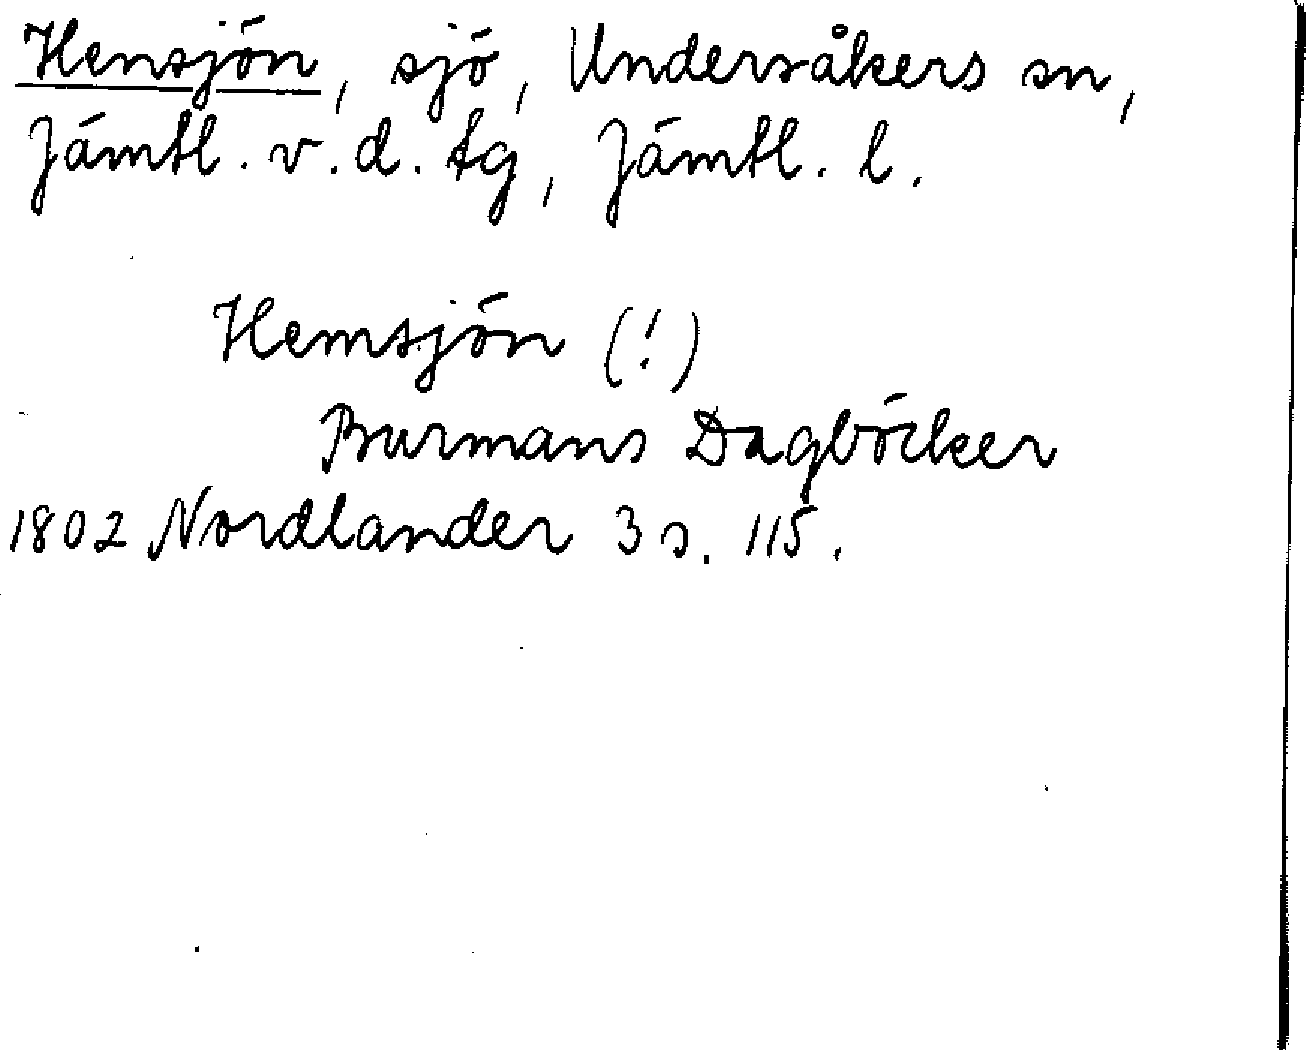 Hensjön, sjö, Undersåkers sn,
Jämtl. v. d. tg, Jämtl. l.
Hemsjön (!)
Burmans Dagböcker
1802 Nordlander 3 s. 115.